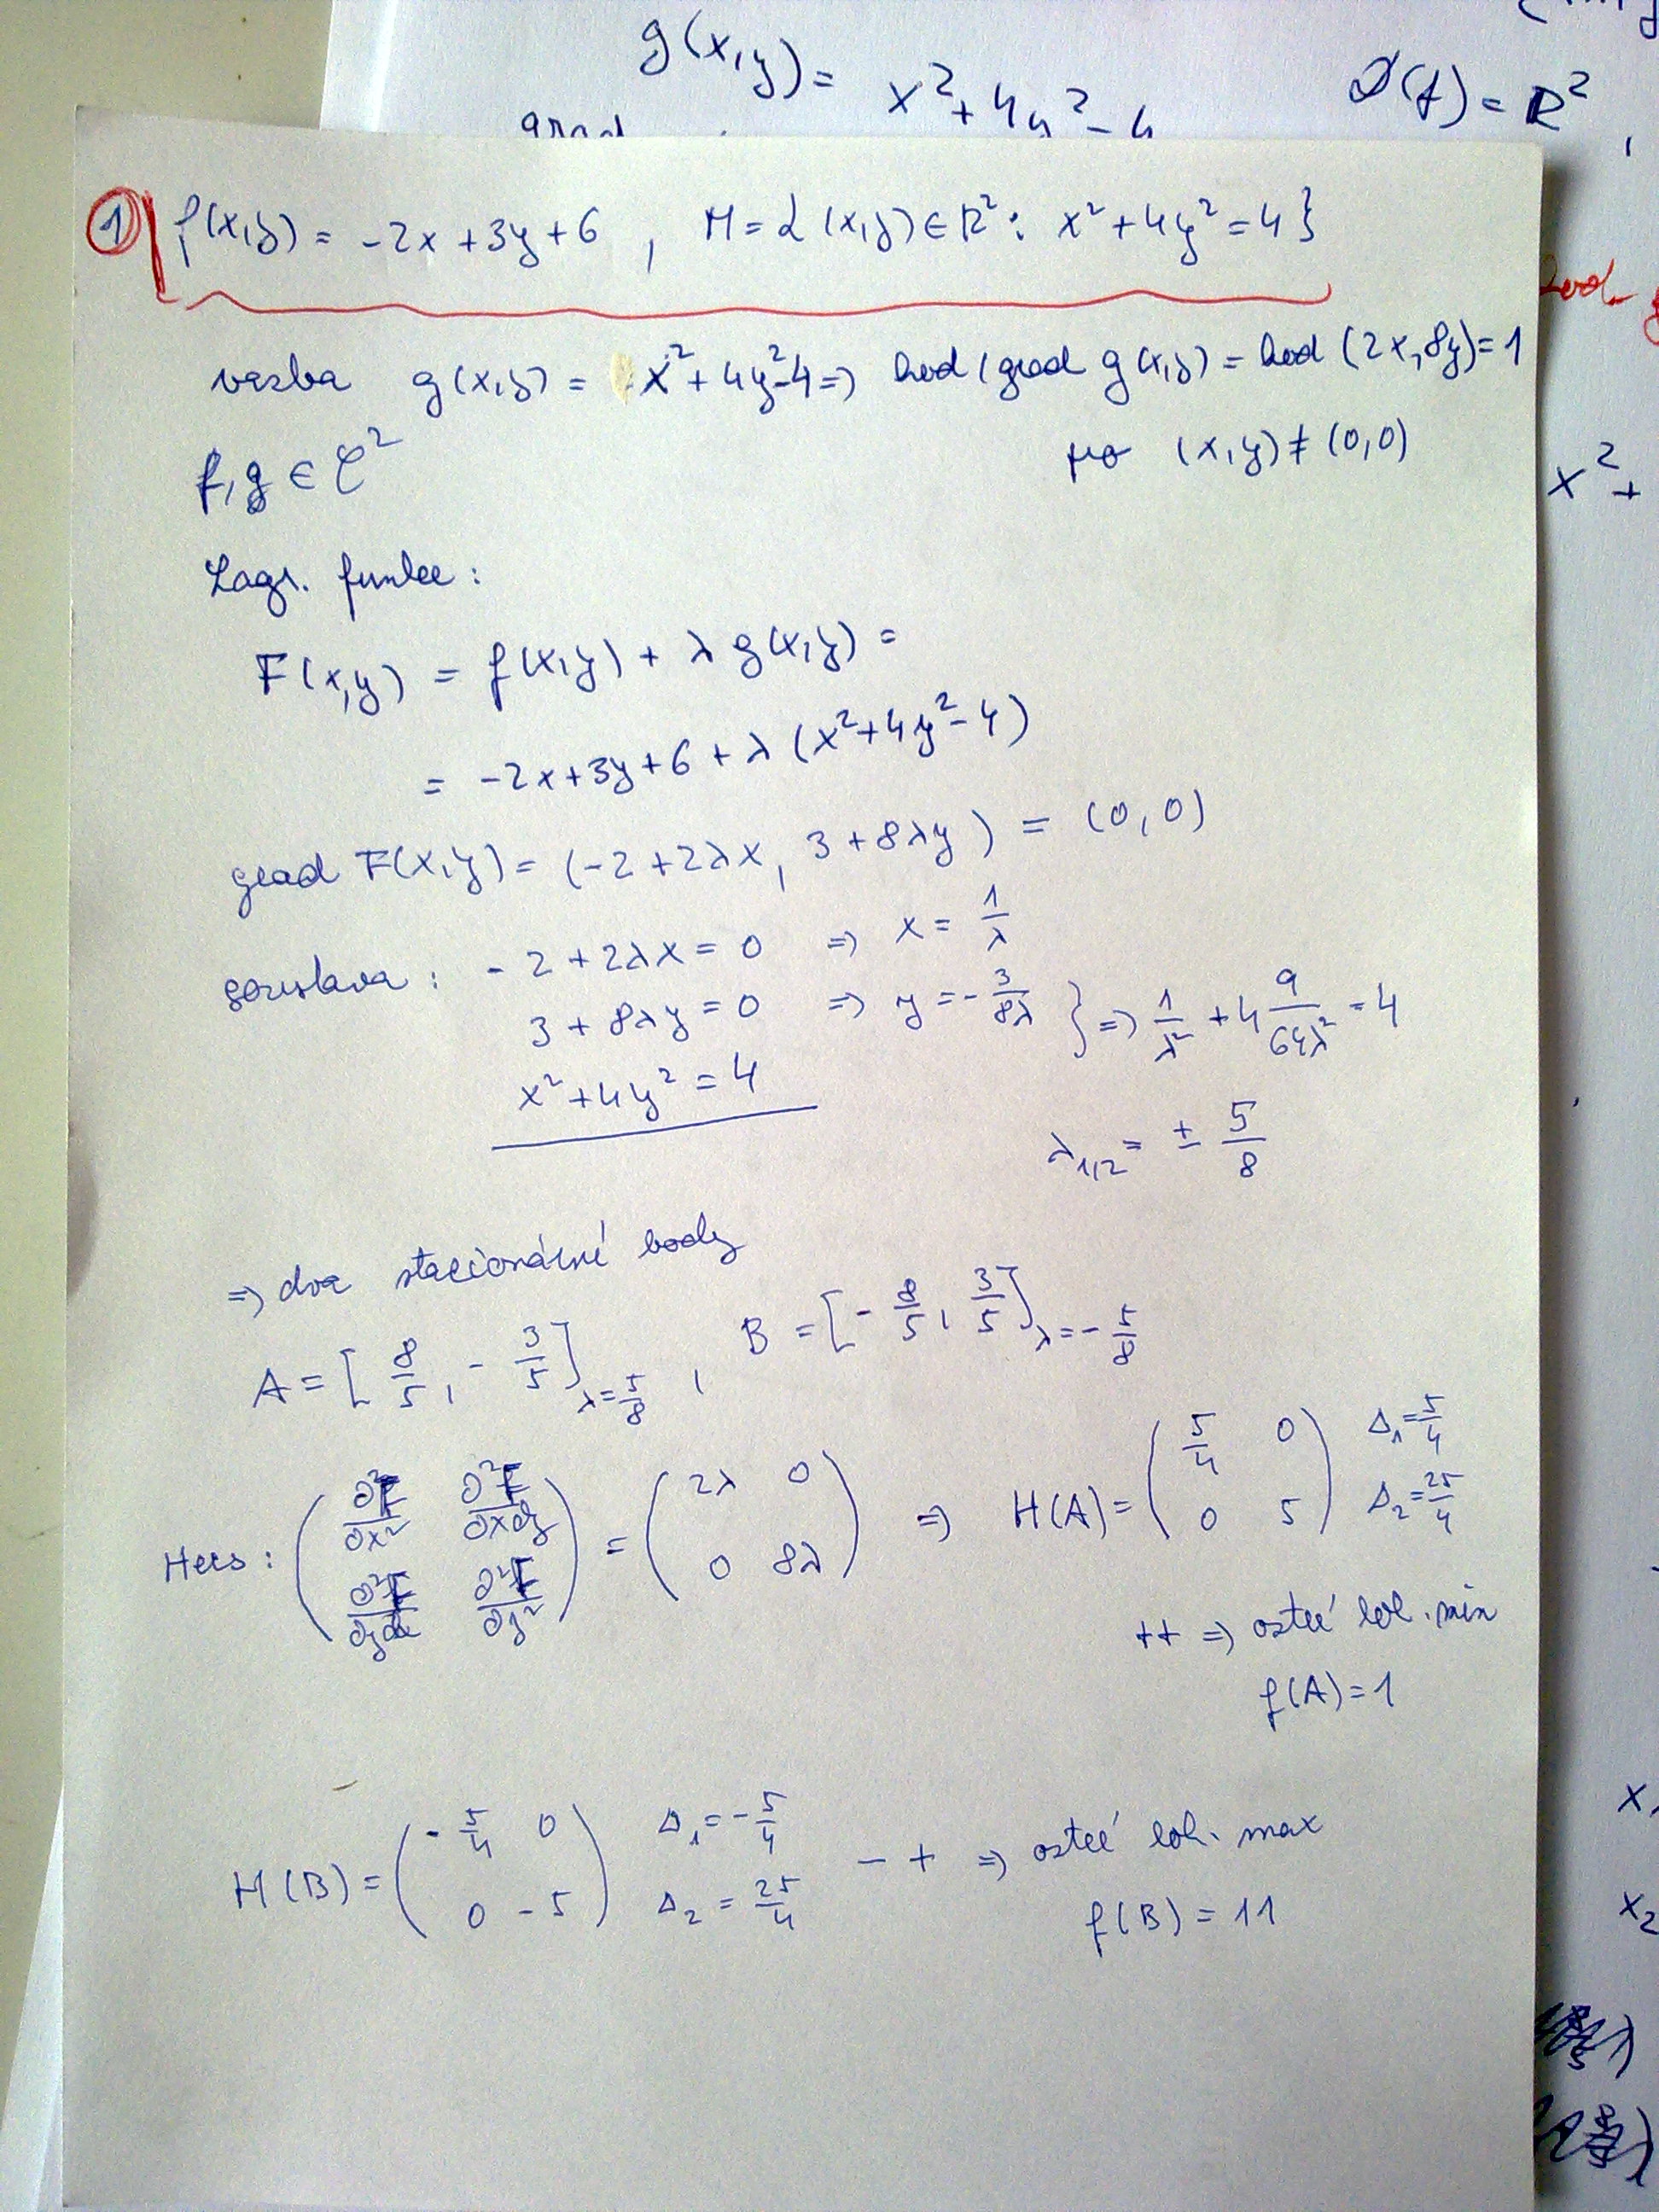 g(x,y) = x² + 4y² - 4 D(f) = R²,
grad
① f(x,y) = -2x + 3y + 6 , M = { (x,y) ∈ R² : x² + 4y² = 4 }
vazba g(x,y) = x² + 4y² - 4 => hod (grad g(x,y) = hod (2x, 8y) = 1
pro (x,y) ≠ (0,0)
f, g ∈ C²
x² +
Lagr. funkce :
F(x,y) = f(x,y) + λ g(x,y) =
= -2x + 3y + 6 + λ (x² + 4y² - 4)
grad F(x,y) = (-2 + 2λx, 3 + 8λy) = (0,0)
soustava : -2 + 2λx = 0 => x = 1/λ
3 + 8λy = 0 => y = - 3/8λ } => 1/λ² + 4 9/64λ² = 4
x² + 4y² = 4
λ1,2 = ± 5/8
=> dva stacionární body
A = [ 8/5, - 3/5 ] λ = 5/8 , B = [ - 8/5, 3/5 ] λ = - 5/8
Hess : ( ∂²F/∂x² ∂²F/∂x∂y ; ∂²F/∂y∂x ∂²F/∂y² ) = ( 2λ 0 ; 0 8λ ) => H(A) = ( 5/4 0 ; 0 5 ) Δ1 = 5/4 Δ2 = 25/4
++ => ostré lok. min
f(A) = 1
H(B) = ( - 5/4 0 ; 0 -5 ) Δ1 = - 5/4 Δ2 = 25/4 - + => ostré lok. max
f(B) = 11
x2